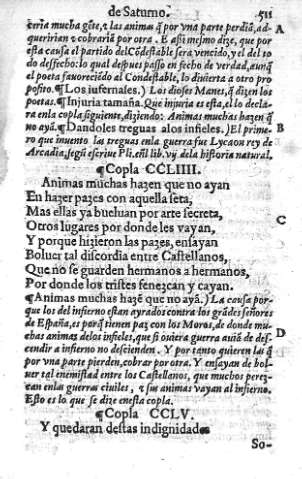 de Saturno. 511
cería mucha gẽte, ⁊ las animas q̃ por vna parte perdiã, ad- A
queririan ⁊ cobrariã por otra. E assi mesmo dize, que por
esta causa el partido del Cõdestable sera vencido, y el del to
do dessecho: lo qual despues passo en fecho de verdad, aunq̃
el poeta fauoreciẽdo al Condestable, lo diuierta a otro pro
posito. ¶Los iufernales.) Los dioses Manes, q̃ dizen los
poetas. ¶Injuria tamaña. Que injuria es esta, el lo decla
ra enla copla siguiente, diziendo: Animas muchas hazen q̃
no ayã. ¶Dandoles treguas alos infieles.) El prime- B
ro que inuento las treguas enla guerra fue Lycaon rey de
Arcadia, segũ escriue Pli. enl lib. vij dela historia natural.
¶Copla CCLIIII.
Animas muchas hazen que no ayan
En hazer pazes con aquella seta,
Mas ellas ya bueluan por arte secreta, C
Otros lugares por donde les vayan,
Y porque hizieron las pazes, ensayan
Boluer tal discordia entre Castellanos,
Que no se guarden hermanos a hermanos,
Por donde los tristes fenezcan y cayan.
¶Animas muchas hazẽ que no ayã.) La causa por-
que los del infierno estan ayrados contra los grãdes señores
de España, es porq̃ tienen paz con los Moros, de donde mu-
chas animas delos infieles, que si ouiera guerra auiã de des- D
cendir a infierno no descienden. Y por tanto quieren las q̃
por vna parte pierden, cobrar por otra. Y ensayan de bol-
uer tal enemistad entre los Castellanos, que muchos perez-
can enlas guerras ciuiles, ⁊ sus animas vayan al infierno.
Esto es lo que se dize enesta copla.
¶Copla CCLV.
Y quedaran destas indignidades
So-